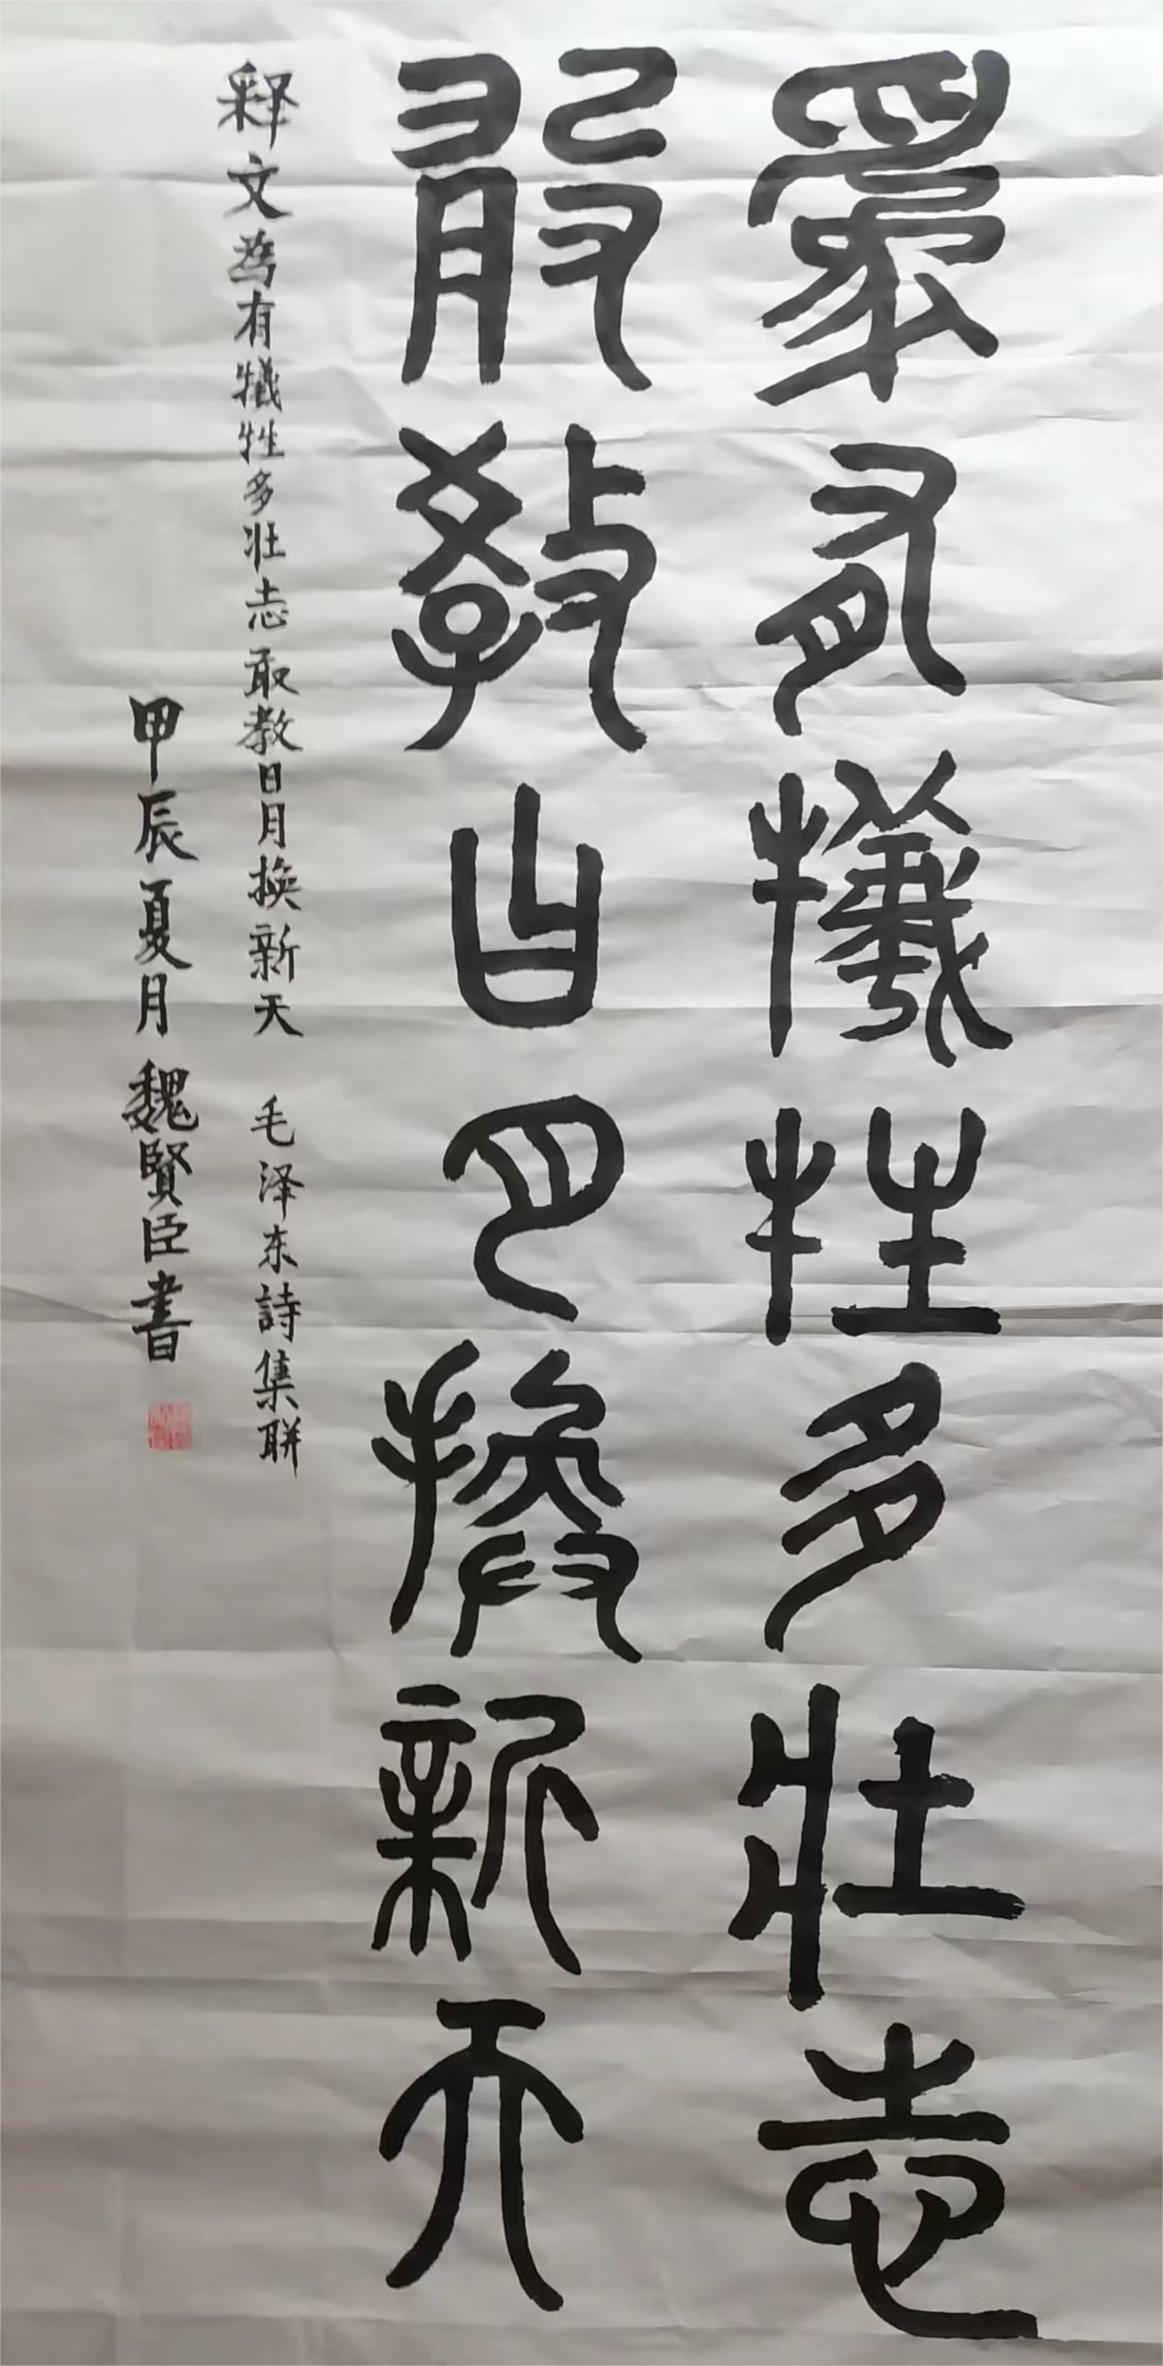 為有犧牲多壯志
敢教日月換新天
释文為有犧牲多壮志敢教日月换新天 毛泽东詩集联
甲辰夏月魏賢臣書